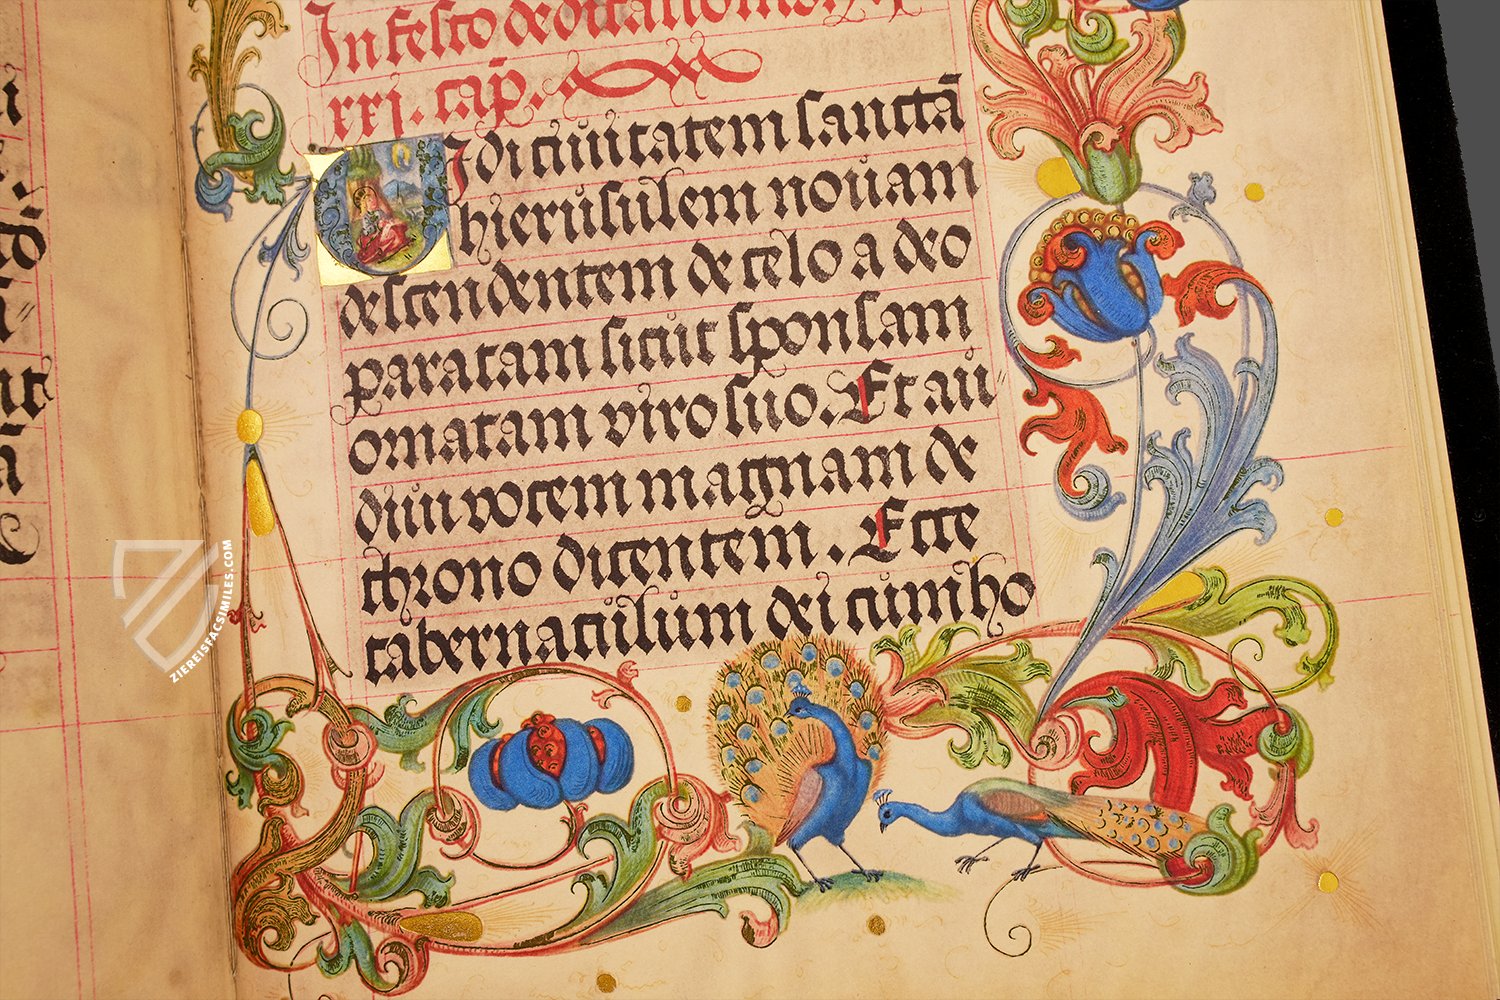 In festo dedicationis
xxj. cap̄.
Vidi ciuitatem sanctā
hierusulem nouam
descendentem de celo a deo
paratam sicut sponsam
ornatam viro suo. Et au
diui vocem magnam de
throno dicentem. Ecce
tabernaculum dei cum ho
ZIEREISFACSIMILES.COM